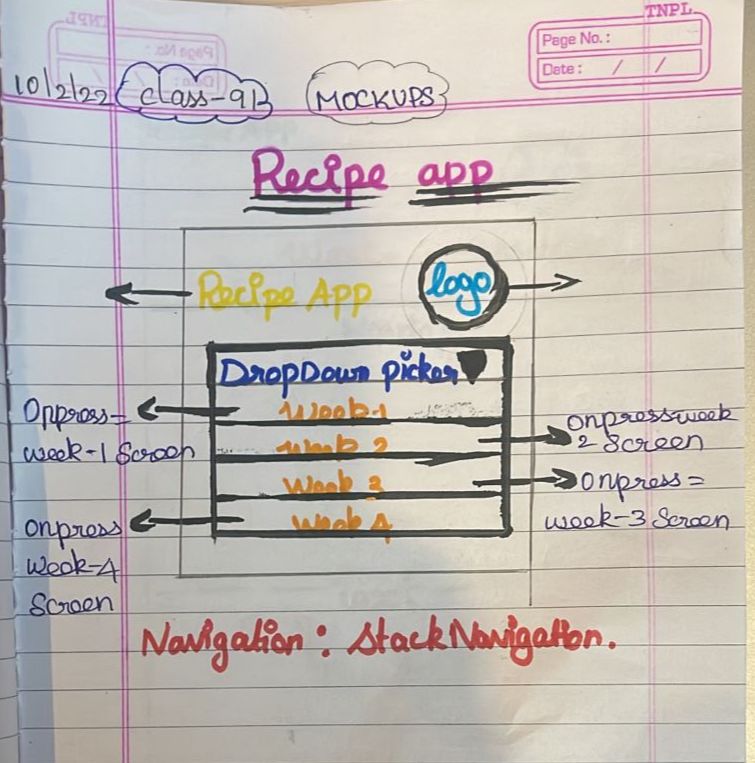 TNPL
Page No. :
Date : / /
10/2/22 Class-91 MOCKUPS
Recipe app
Recipe App logo
DropDown picker
Week-1
Onpress=
week-1 Screen
Week 2
onpress=week
2 Screen
Week 3
Onpress=
week-3 Screen
Week 4
onpress
Week-4
Screen
Navigation: StackNavigation.